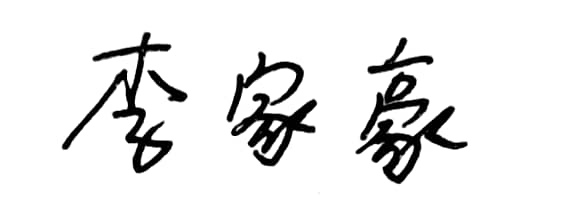 李家豪